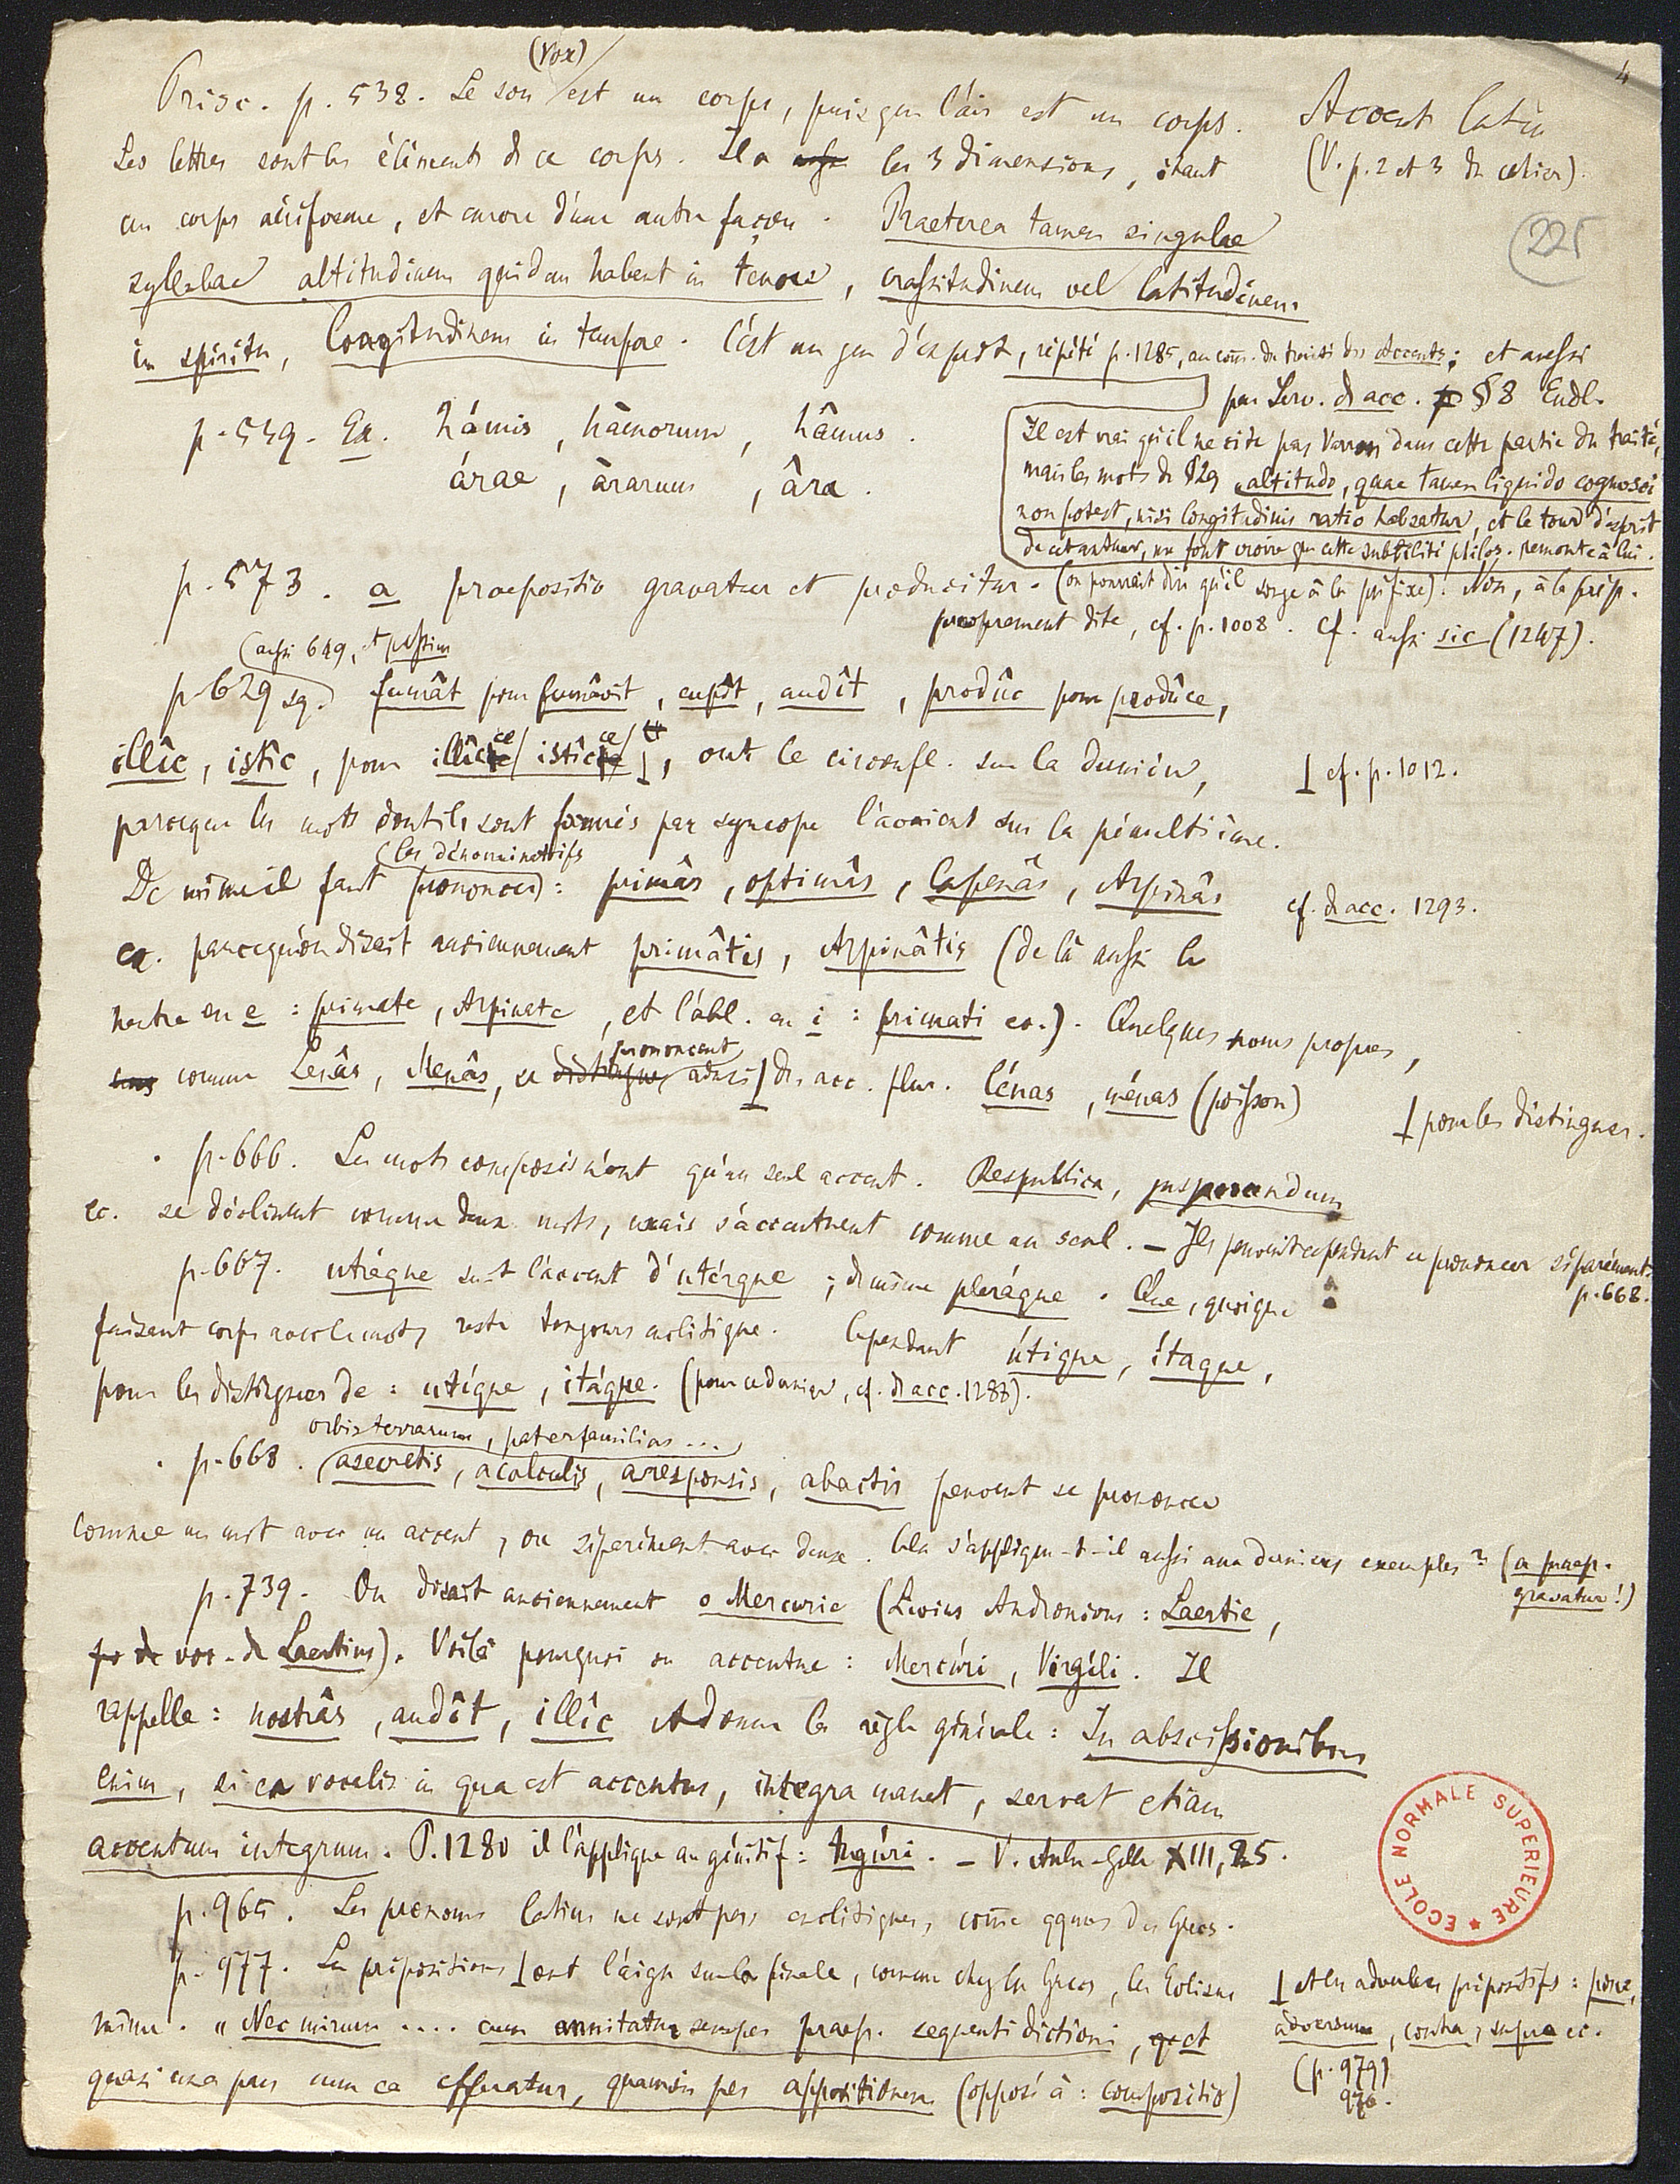 4
(vox)
Prisc. p. 538. Le son est un corps, puisque l'air est un corps.
Accent latin
Les lettres sont les éléments de ce corps. Il a les 3 dimensions, étant
(V. p. 2 et 3 du cahier).
un corps aériforme, et encore d'une autre façon. Praeterea tamen singulae
225
syllabae altitudinem quidem habent in tenore, crassitudinem vel latitudinem
in spiritu, longitudinem in tempore. C'est un jeu d'esprit, répété p. 1285, au com. du traité des Accents; et aussi
par Serv. de acc. § 8 Endl.
Il est vrai qu'il ne cite pas Varron dans cette partie du traité,
mais les mots du § 29 altitudo, quae tamen liquido cognosci
non potest, nisi longitudinis ratio habeatur, et le tour d'esprit
de cet auteur, me font croire que cette subtilité philos. remonte à lui.
p. 549. Ex. hámis, hàmorum, hâmus.
árae, àrarum, âra.
p. 573. a praepositio gravatur et producitur. (on pourrait dire qu'il songe à la préfixe). Non, à la prép.
proprement dite, cf. p. 1008. cf. aussi sic (1247).
(aussi 649, et passim
p. 629 sq. fumât pour fumâvit, cupît, audît, produc pour prodûce,
illîc, istîc, pour illîcce / istîcce, ont le circonfl. sur la dernière,
cf. p. 1012.
parceque les mots dont ils sont formés par syncope l'avaient sur la pénultième.
(les dénominatifs
De même il faut prononcer: primâs, optimâs, Capenâs, Arpinâs
cf. de acc. 1293.
ec. parcequ'on disait anciennement primâtis, Arpinâtis (de là aussi le
neutre en e: primate, Arpinate, et l'abl. en i: primati ec.). Quelques noms propres,
comme Lenâs, Menâs, se prononcent ainsi des acc. plur. lénas, ménas (poisson)
pour les distinguer.
p. 666. Les mots composés n'ont qu'un seul accent. Respublica, jusjurandum
ec. se déclinent comme deux mots, mais s'accentuent comme un seul. — Ils peuvent cependant se prononcer séparément.
p. 668.
p. 667. utráque suit l'accent d'utérque; de même pleráque. Que, quoique
faisant corps avec le mot, reste toujours enclitique. Cependant útique, ítaque,
pour les distinguer de: utíque, itáque. (pour ce dernier, cf. de acc. 1288).
orbisterrarum, paterfamilias ...
p. 668. asecretis, acalculis, aresponsis, abactis peuvent se prononcer
comme un mot avec un accent, ou séparément avec deux. Cela s'applique-t-il aussi aux derniers exemples? (a praep.
gravatur!)
p. 739. On disait anciennement o Mercurie (Livius Andronicus: Laertie,
voc. de Laertius). Voilà pourquoi on accentue: Mercúri, Virgíli. Il
rappelle: nostrâs, audît, illîc et donne la règle générale: In abscissionibus
enim, si ea vocalis in qua est accentus, integra manet, servat etiam
accentum integrum. P. 1280 il l'applique au génitif: tugúri. — V. Aulu-Gelle XIII, 25.
p. 965. Les pronoms latins ne sont pas enclitiques, comme qques des Grecs.
p. 977. Les prépositions ont l'aigu sur la finale, comme chez les Grecs, les Eoliens
et les adverbes prépositifs: pone,
même. « Nec mirum .... cum annitatur semper praep. sequenti dictioni, et
adversum, contra, supra ec.
quasi una pars cum ea efferatur, quamvis per appositionem (opposé à: compositio)
(p. 979)
976.
ECOLE NORMALE SUPERIEURE